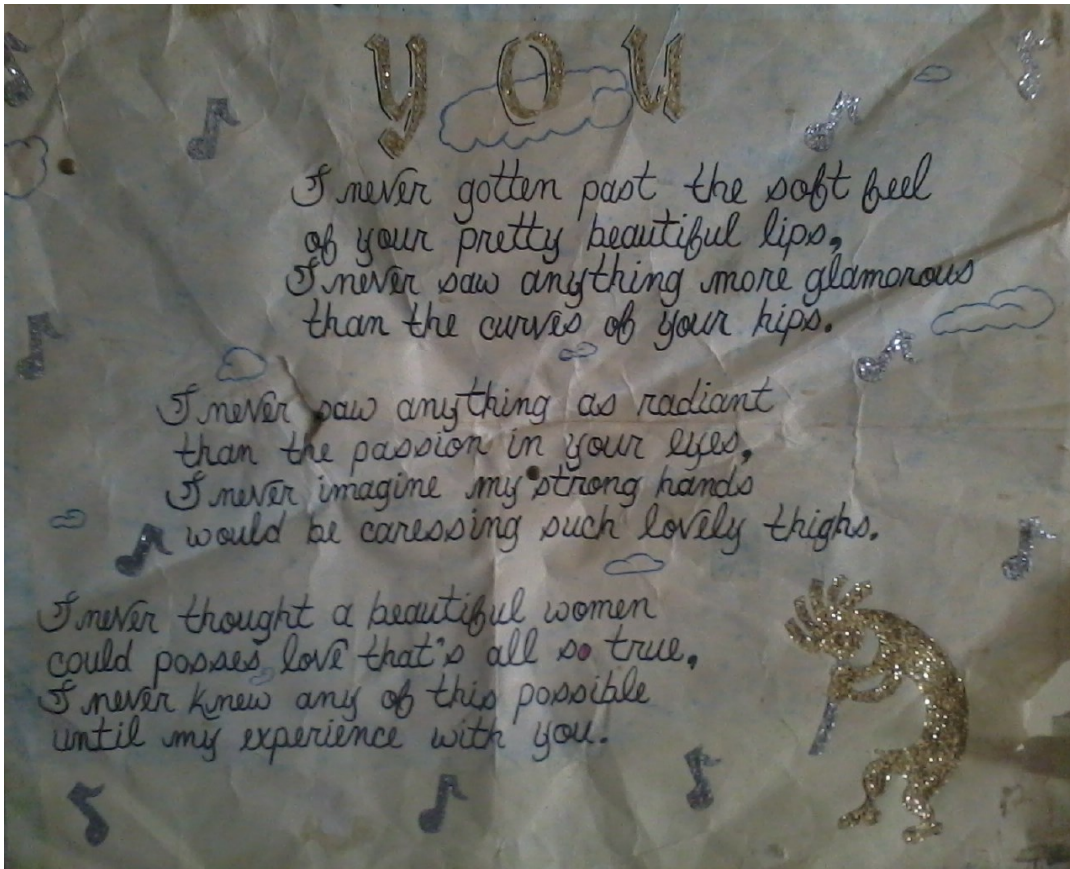 you
I never gotten past the soft feel
of your pretty beautiful lips,
I never saw anything more glamorous
than the curves of your hips.
I never saw anything as radiant
than the passion in your eyes,
I never imagine my strong hands
would be caressing such lovely thighs.
I never thought a beautiful women
could posses love that's all so true,
I never knew any of this possible
until my experience with you.